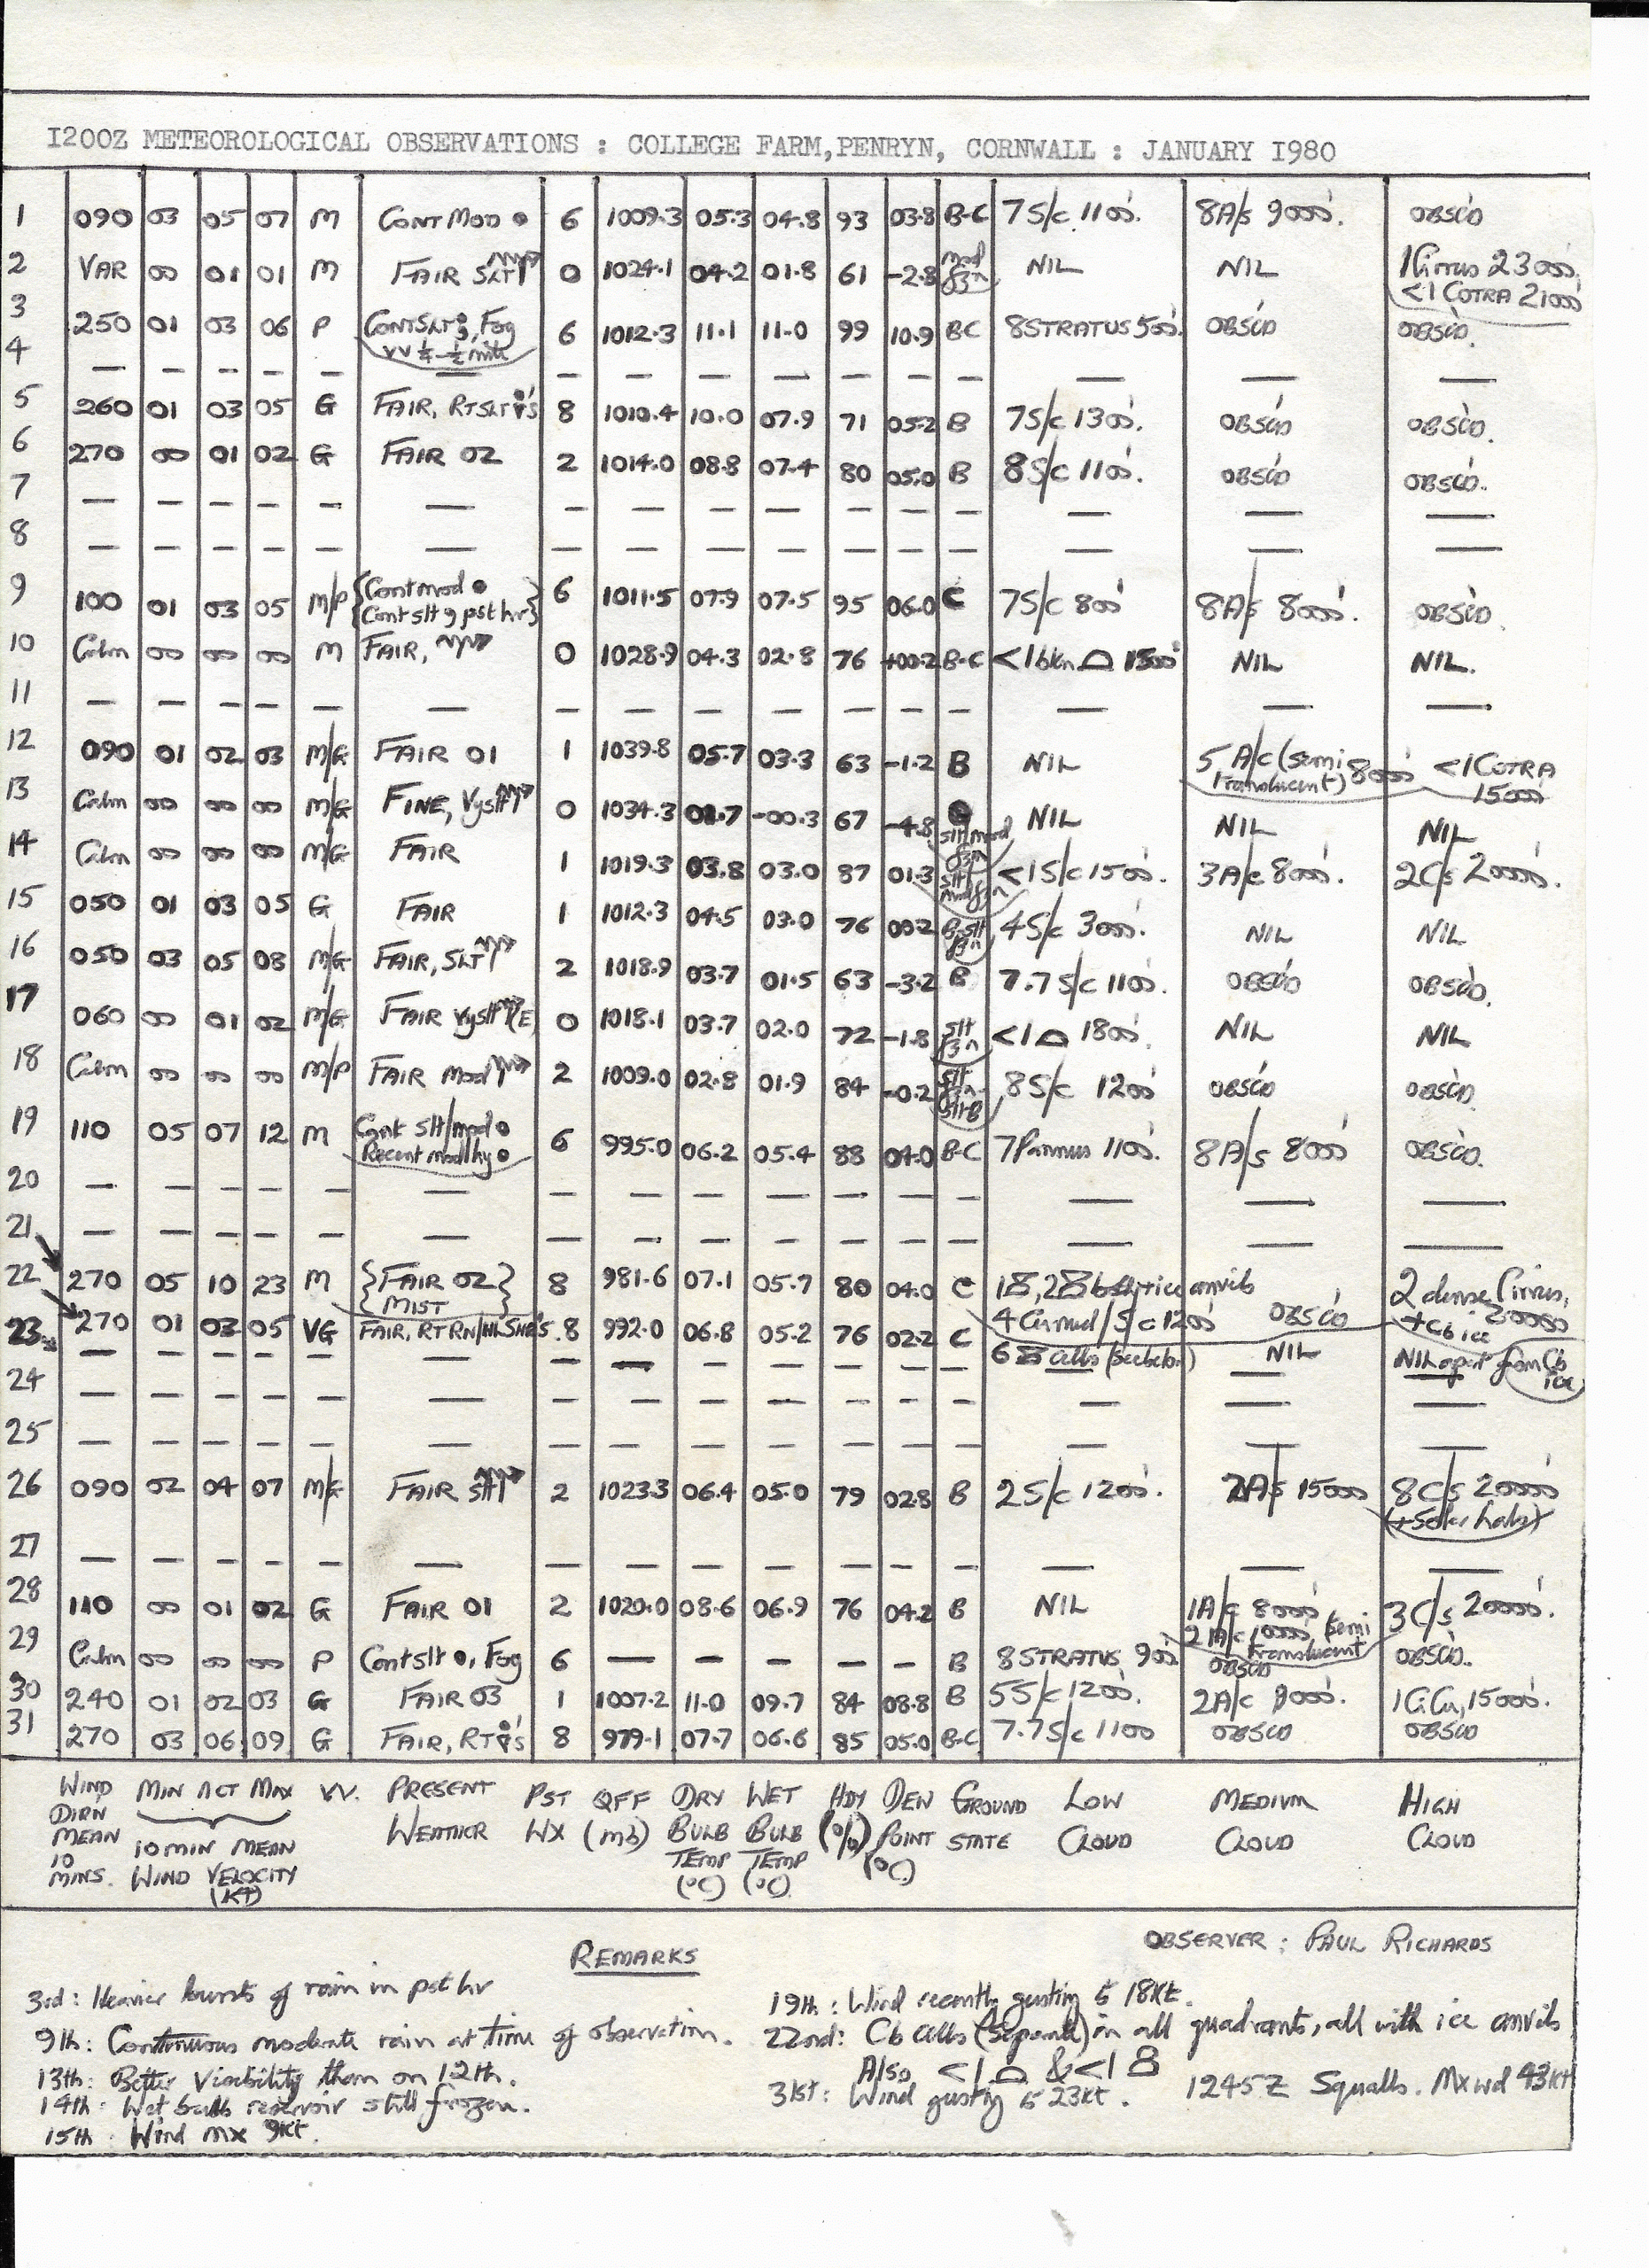 1200Z METEOROLOGICAL OBSERVATIONS : COLLEGE FARM, PENRYN, CORNWALL : JANUARY 1980
1 090 03 05 07 M CONT MOD ● 6 1009.3 05.3 04.8 93 03.8 B-C 7 S/c 1100'. 8 A/s 9000'. OBSC'D
2 VAR 00 01 01 M FAIR SLT 0 1024.1 04.2 01.8 61 -2.8 mod fzn NIL NIL 1 Cirrus 23000' <1 COTRA 21000'
3 250 01 03 06 P CONT SLT, FOG VV ¼-½ mile 6 1012.3 11.1 11.0 99 10.9 BC 8 STRATUS 500'. OBSC'D OBSC'D.
4 — — — — — — — — — — — — — — — —
5 260 01 03 05 G FAIR, RT SLT 's 8 1010.4 10.0 07.9 71 05.2 B 7 S/c 1300'. OBSC'D OBSC'D.
6 270 00 01 02 G FAIR 02 2 1014.0 08.8 07.4 80 05.0 B 8 S/c 1100'. OBSC'D OBSC'D.
7 — — — — — — — — — — — — — — — —
8 — — — — — — — — — — — — — — — —
9 100 01 03 05 M/P {Cont mod ● Cont slt , pst hr} 6 1011.5 07.9 07.5 95 06.0 C 7 S/c 800' 8 A/s 8000'. OBSC'D.
10 Calm 00 00 00 M FAIR, 0 1028.9 04.3 02.8 76 +00.2 B-C <1 bkn 1500' NIL NIL.
11 — — — — — — — — — — — — — — — —
12 090 01 02 03 M/G FAIR 01 1 1039.8 05.7 03.3 63 -1.2 B NIL 5 A/c (semi translucent) 8000' <1 COTRA 15000'
13 Calm 00 00 00 M/G FINE, Vy slt 0 1034.3 01.7 -00.3 67 -4.8 slt/mod fzn NIL NIL NIL
14 Calm 00 00 00 M/G FAIR 1 1019.3 03.8 03.0 87 01.3 slt mod fzn <1 S/c 1500'. 3 A/c 8000'. 2 C/s 20000'.
15 050 01 03 05 G FAIR 1 1012.3 04.5 03.0 76 00.2 B-slt fzn 4 S/c 3000'. NIL NIL
16 050 03 05 08 M/G FAIR, SLT 2 1018.9 03.7 01.5 63 -3.2 B 7.7 S/c 1100'. OBSC'D OBSC'D.
17 060 00 01 02 M/G FAIR Vy slt (E) 0 1018.1 03.7 02.0 72 -1.8 slt fzn <1 1800'. NIL NIL
18 Calm 00 00 00 M/P FAIR mod 2 1009.0 02.8 01.9 84 -0.2 slt fzn-slt B 8 S/c 1200' OBSC'D OBSC'D.
19 110 05 07 12 M Cont slt/mod ● Recent mod/hy ● 6 995.0 06.2 05.4 88 04.0 B-C 7 Pannus 1100'. 8 A/s 8000' OBSC'D.
20 — — — — — — — — — — — — — — — —
21 — — — — — — — — — — — — — — — —
22 270 05 10 23 M {FAIR 02 MIST} 8 981.6 07.1 05.7 80 04.0 C ice anvils 4 S/c 1200' OBSC'D 2 dense Cirrus, + Cb ice 20000
23 270 01 03 05 VG FAIR, RT RN/HL SHR'S 8 992.0 06.8 05.2 76 02.2 C 6 cells NIL NIL apart from Cb ice
24 — — — — — — — — — — — — — — — —
25 — — — — — — — — — — — — — — — —
26 090 02 04 07 M/G FAIR slt 2 1023.3 06.4 05.0 79 02.8 B 2 S/c 1200'. 2 A/s 15000 8 C/s 20000' (+ Solar halo)
27 — — — — — — — — — — — — — — — —
28 110 00 01 02 G FAIR 01 2 1020.0 08.6 06.9 76 04.2 B NIL 1 A/c 8000' 2 A/c 10000' semi translucent 3 C/s 20000'.
29 Calm 00 00 00 P Cont slt ●, Fog 6 — — — — — B 8 STRATUS 900' OBSC'D OBSC'D.
30 240 01 02 03 G FAIR 03 1 1007.2 11.0 09.7 84 08.8 B 5 S/c 1200'. 2 A/c 8000'. 1 Ci.Cu, 15000'.
31 270 03 06 09 G FAIR, RT 's 8 979.1 07.7 06.6 85 05.0 B-C 7.7 S/c 1100 OBSCD OBSCD
WIND DIRN MEAN 10 MINS. MIN ACT MAX 10 MIN MEAN WIND VELOCITY (KT) VV. PRESENT WEATHER PST WX QFF (mb) DRY BULB TEMP (°C) WET BULB TEMP (°C) HDY (%) DEW POINT (°C) GROUND STATE LOW CLOUD MEDIUM CLOUD HIGH CLOUD
OBSERVER : PAUL RICHARDS
REMARKS
3rd : Heavier bursts of rain in pst hr
9th : Continuous moderate rain at time of observation.
13th : Better Visibility than on 12th.
14th : Wet bulb reservoir still frozen.
15th : Wind mx 9kt.
19th : Wind recently gusting to 18kt.
22nd : Cb cells (separate) in all quadrants, all with ice anvils
Also <1 & <1
1245Z Squalls. Mx wd 43kt
31st : Wind gusting to 23kt.